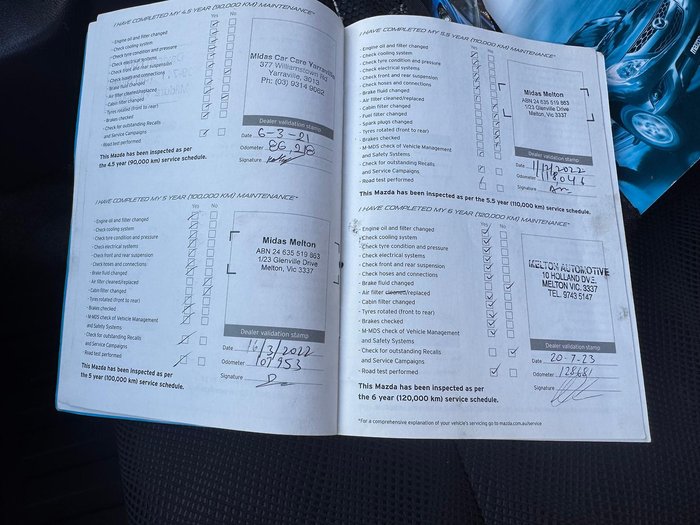 I HAVE COMPLETED MY 4.5 YEAR (90,000 KM) MAINTENANCE*
Yes No
- Engine oil and filter changed
- Check cooling system
- Check tyre condition and pressure
- Check electrical systems
- Check front and rear suspension
- Check hoses and connections
- Brake fluid changed
- Air filter cleaned/replaced
- Cabin filter changed
- Tyres rotated (front to rear)
- Brakes checked
- Check for outstanding Recalls
and Service Campaigns
- Road test performed
This Mazda has been inspected as per
the 4.5 year (90,000 km) service schedule.
Midas Car Care Yarraville
377 Williamstown Rd
Yarraville, 3013
Ph: (03) 9314 9062
Dealer validation stamp
Date 6-3-21
Odometer 86,918
Signature
I HAVE COMPLETED MY 5 YEAR (100,000 KM) MAINTENANCE*
Yes No
- Engine oil and filter changed
- Check cooling system
- Check tyre condition and pressure
- Check electrical systems
- Check front and rear suspension
- Check hoses and connections
- Brake fluid changed
- Air filter cleaned/replaced
- Cabin filter changed
- Tyres rotated (front to rear)
- Brakes checked
- M-MDS check of Vehicle Management
and Safety Systems
- Check for outstanding Recalls
and Service Campaigns
- Road test performed
This Mazda has been inspected as per
the 5 year (100,000 km) service schedule.
Midas Melton
ABN 24 635 519 863
1/23 Glenville Drive
Melton, Vic 3337
Dealer validation stamp
Date 16/3/2022
Odometer 107953
Signature
I HAVE COMPLETED MY 5.5 YEAR (110,000 KM) MAINTENANCE*
Yes No
- Engine oil and filter changed
- Check cooling system
- Check tyre condition and pressure
- Check electrical systems
- Check front and rear suspension
- Check hoses and connections
- Brake fluid changed
- Air filter cleaned/replaced
- Cabin filter changed
- Fuel filter changed
- Spark plugs changed
- Tyres rotated (front to rear)
- Brakes checked
- M-MDS check of Vehicle Management
and Safety Systems
- Check for outstanding Recalls
and Service Campaigns
- Road test performed
This Mazda has been inspected as per the 5.5 year (110,000 km) service schedule.
Midas Melton
ABN 24 635 519 863
1/23 Glenville Drive
Melton, Vic 3337
Dealer validation stamp
Date
Odometer 118046
Signature
I HAVE COMPLETED MY 6 YEAR (120,000 KM) MAINTENANCE*
Yes No
- Engine oil and filter changed
- Check cooling system
- Check tyre condition and pressure
- Check electrical systems
- Check front and rear suspension
- Check hoses and connections
- Brake fluid changed
- Air filter cleaned/replaced
- Cabin filter changed
- Tyres rotated (front to rear)
- Brakes checked
- M-MDS check of Vehicle Management
and Safety Systems
- Check for outstanding Recalls
and Service Campaigns
- Road test performed
This Mazda has been inspected as per
the 6 year (120,000 km) service schedule.
MELTON AUTOMOTIVE
10 HOLLAND DVE.
MELTON VIC. 3337
TEL. 9743 5147
Dealer validation stamp
Date 20-7-23
Odometer 128681
Signature
*For a comprehensive explanation of your vehicle's servicing go to mazda.com.au/service